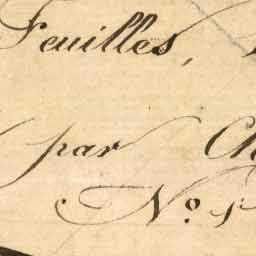 Feuilles,
par Ch
No. 1